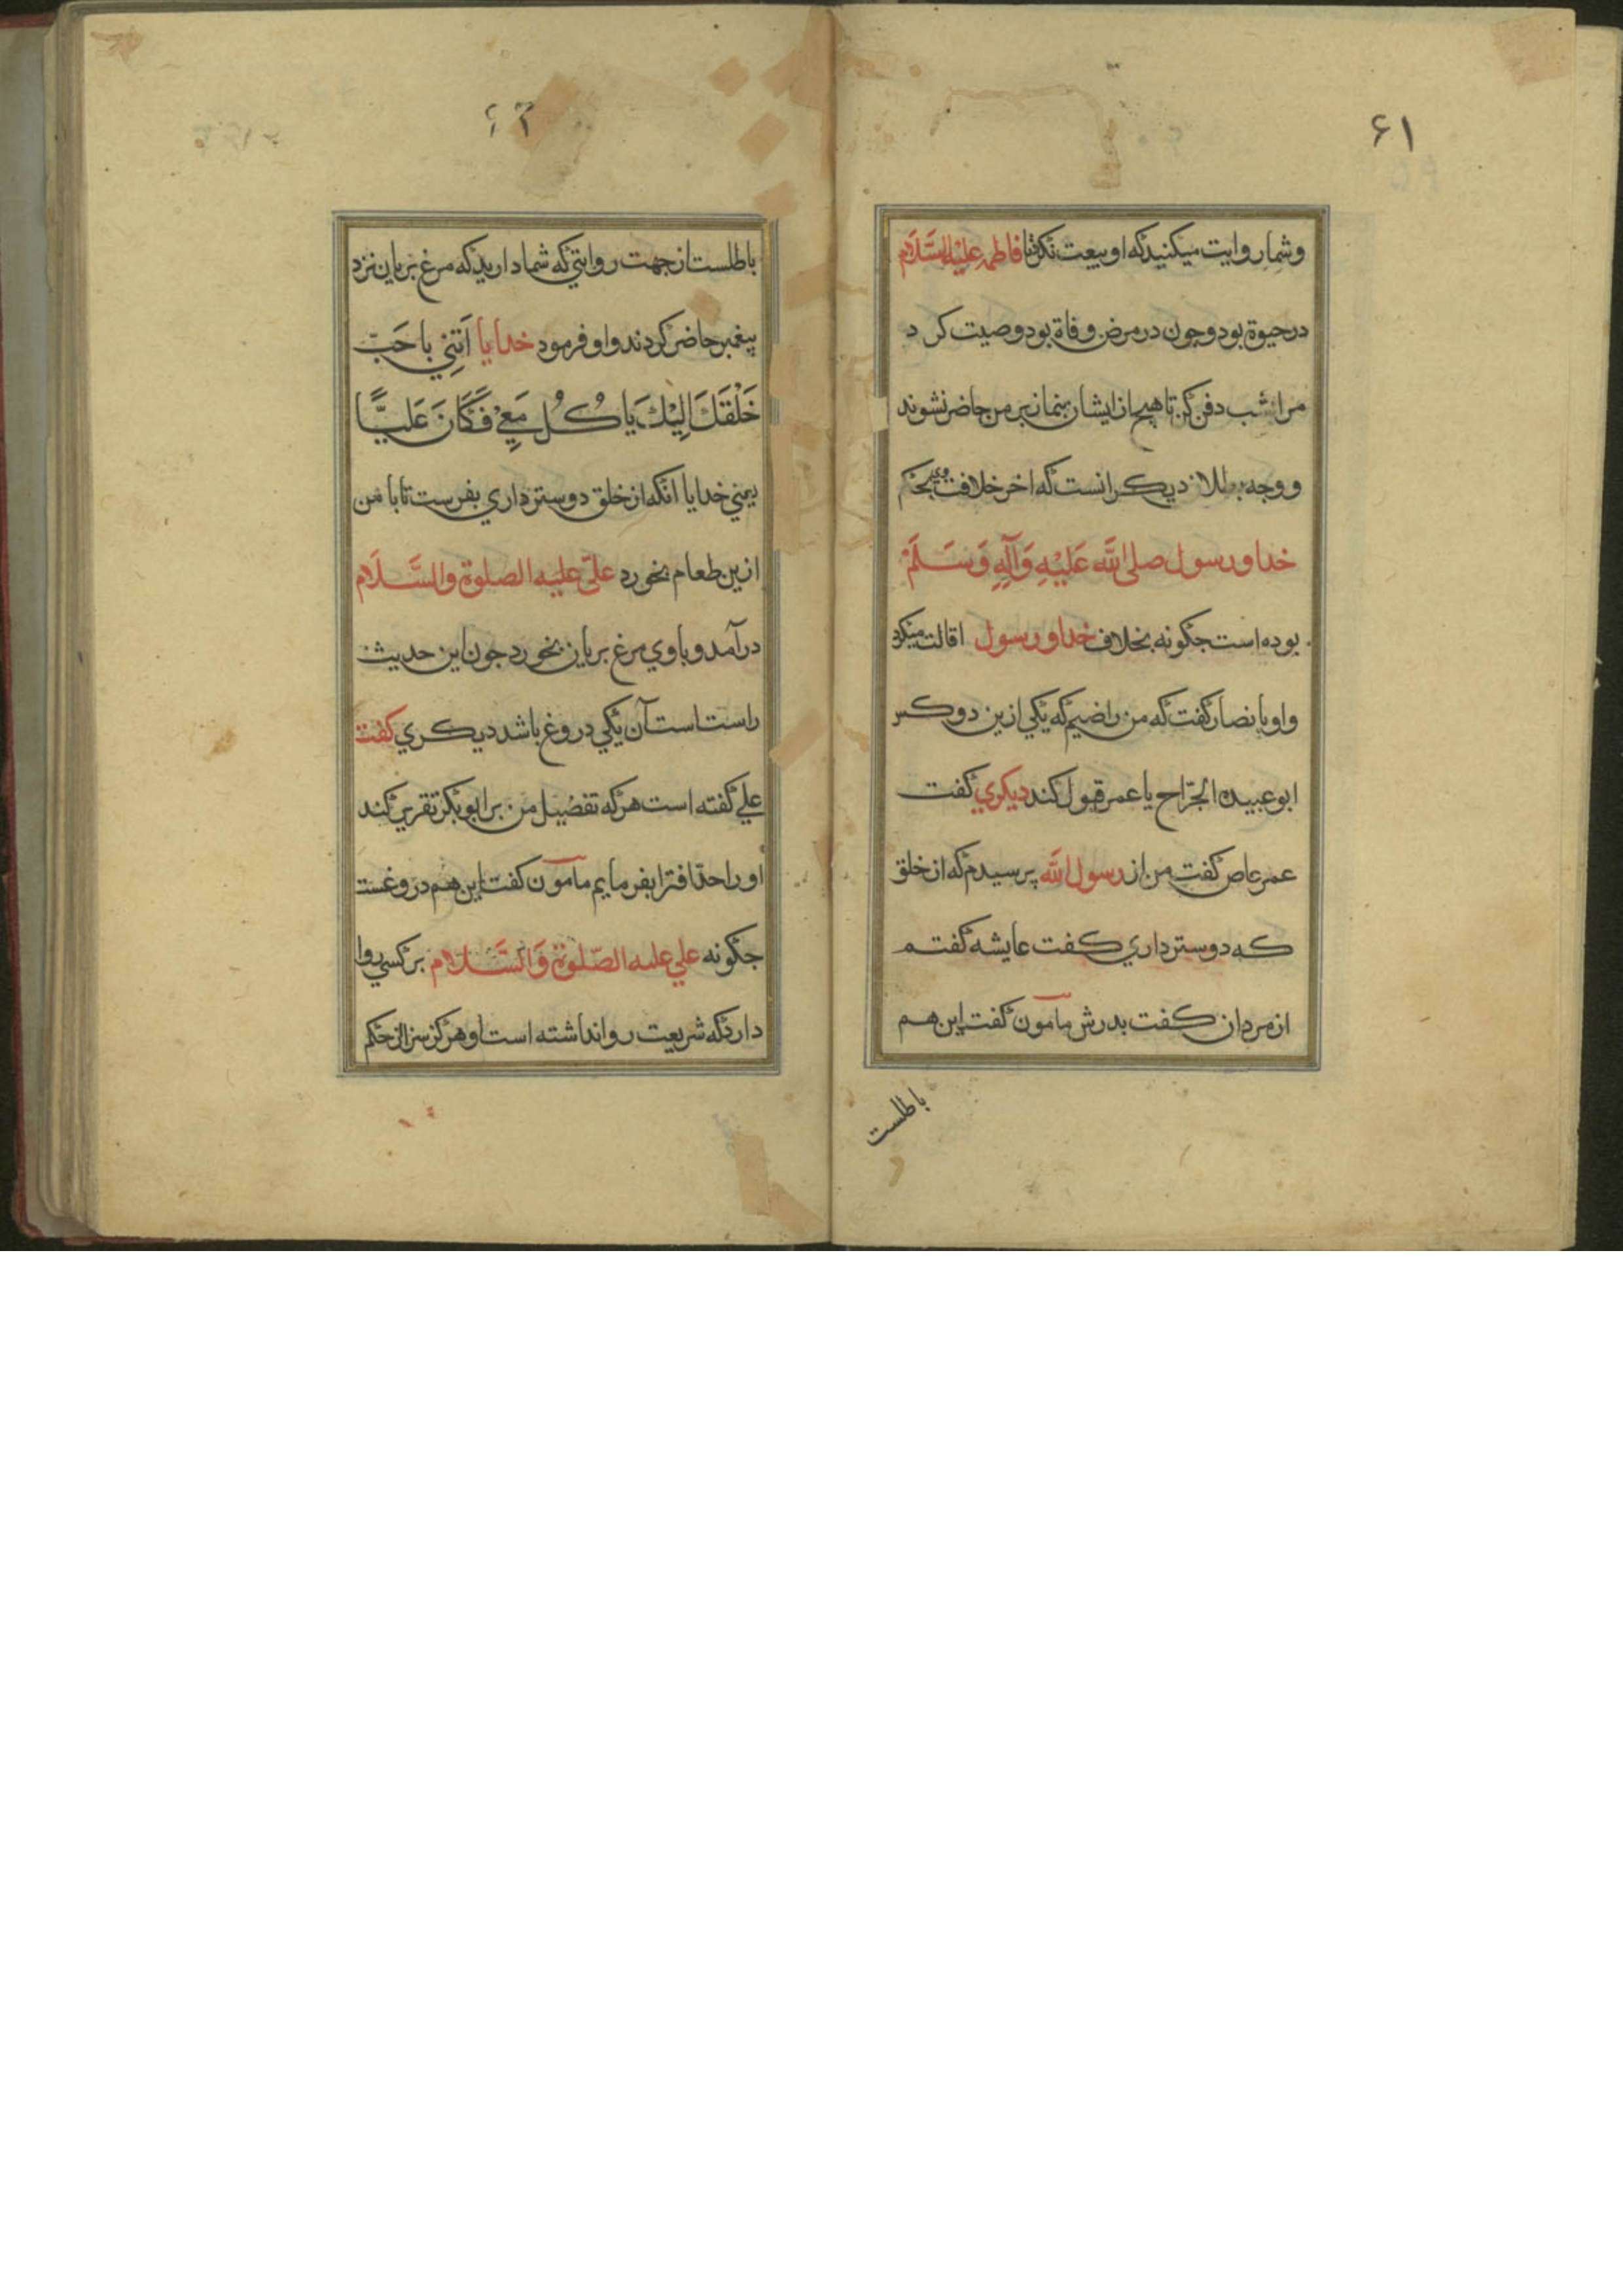 ۶۱
وشما روایت میکنید که او بیعت نکرد تا فاطمه علیها السَّلَام
در حیوة بود و چون در مرض وفاة بود وصیت کرد
مرا شب دفن کن تا هیچ از ایشان بنماز بر من حاضر نشوند
و وجه بطلان دیگر انست که اخر خلافت وی بحکم
خدا و رسول صلی اللّه عَلَیْهِ وَآلِهِ وَسَلَّمْ
بوده است جکونه بخلاف خدا و رسول اقالت میکرد
و او با نصار کفت که من راضیم که یکی از ین دو کس
ابو عبیده الجرّاح یا عمر قبول کند دیکری کفت
عمر عاص کفت من از رسول اللّه پرسیدم که از خلق
که دوستر داری کفت عایشه کفتم
از مردان کفت بدرش مامون کفت این هم
باطلست
۶۲
باطلست از جهت روایتی که شما دارید که مرغ بریان نزد
پیغمبر حاضر کردند و او فرمود خدایا اَتِنِی باحَبِّ
خَلْقِکَ اِلَیْکَ یَاکُلُ مَعِیْ فَکَانَ عَلِیًّا
یعنی خدایا انکه از خلق دوستر داری بفرست تا با من
ازین طعام بخورد علیّ علیه الصلوة والسَّلَام
درآمد و با وی مرغ بریان بخورد جون این حدیث
راست است آن یکی دروغ باشد دیکری کفت
علی کفته است هر که تفضیل من بر ابو بکر تقریر کند
او را حدّ افترا بفرمایم مامون کفت این هم دروغست
جکونه علی علیه الصّلوة وَالسَّلَام بر کسی روا
دارد که شریعت روا نداشته است او هرکز سزای حکم